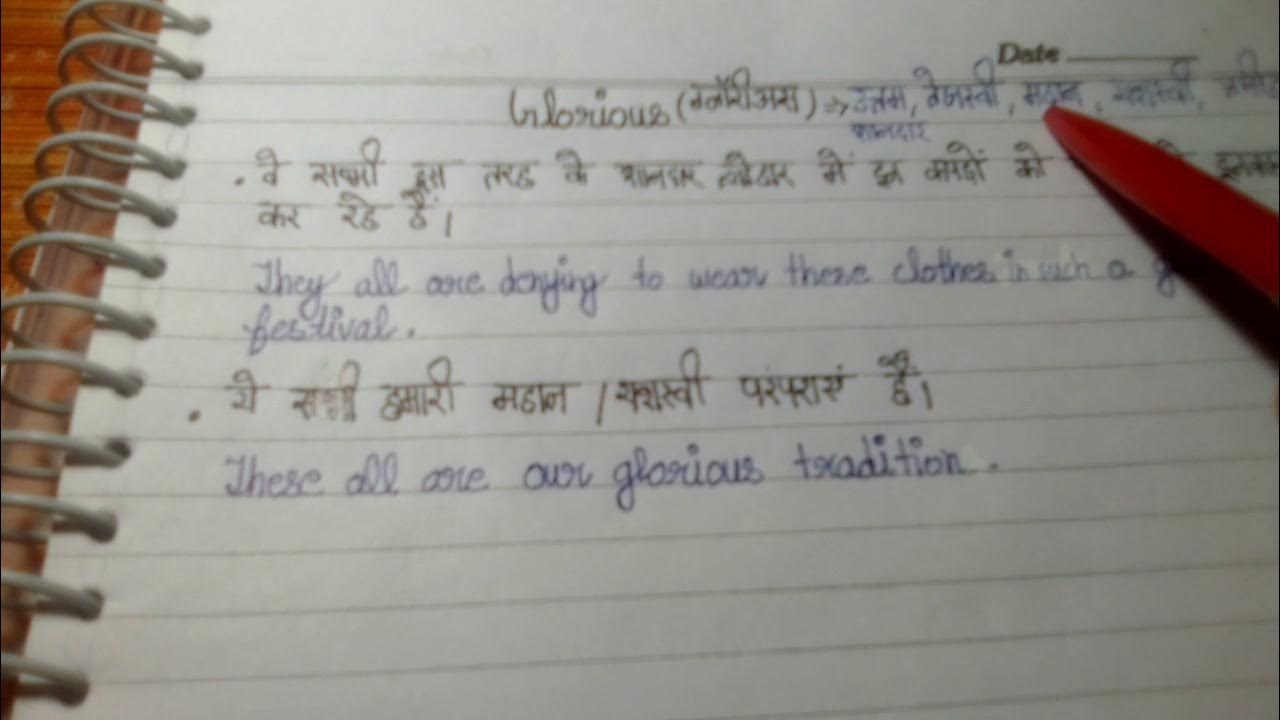 Date
Glorious (ग्लॉरीअस) → उत्तम, तेजस्वी, महान, यशस्वी,
शानदार
. वे सभी इस तरह के शानदार त्योहार में इन कपड़ों को
कर रहे हैं।
They all are denying to wear these clothes in such a
festival.
. ये सभी हमारी महान / यशस्वी परंपराएं हैं।
These all are our glorious tradition.